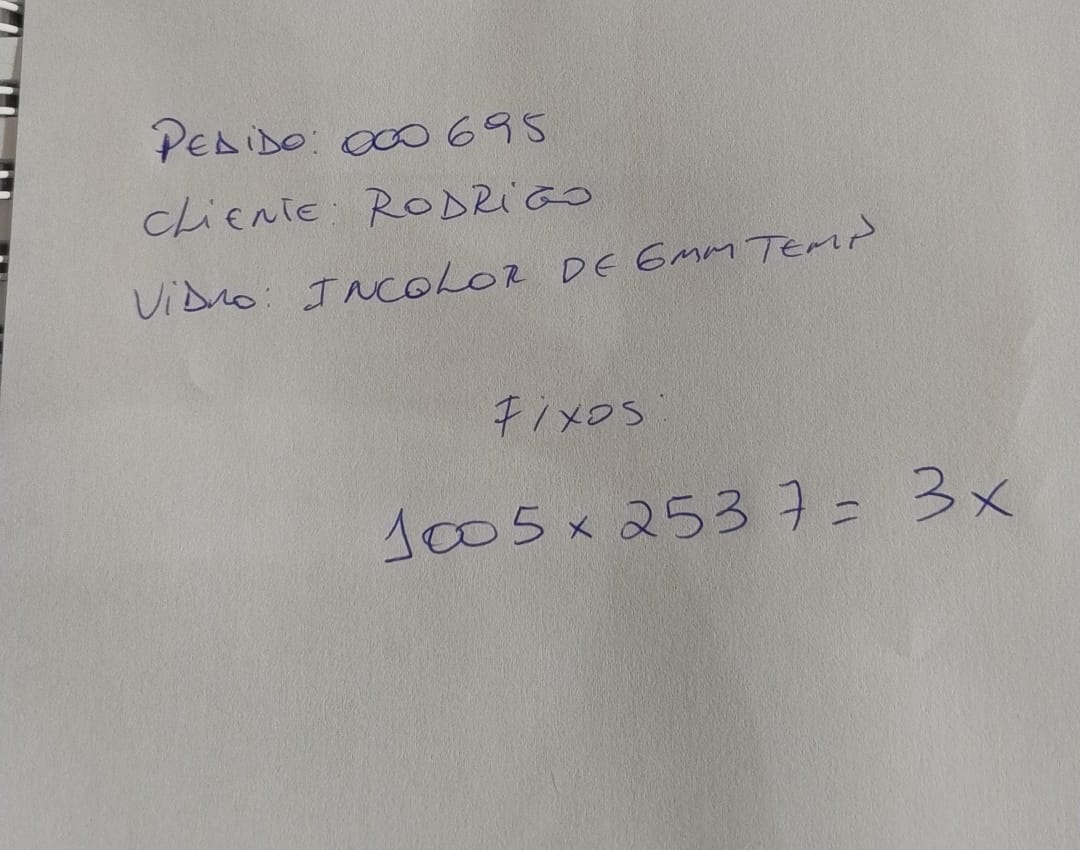 PEDIDO: 000695
CLIENTE: RODRIGO
VIDRO: INCOLOR DE 6MM TEMP
FIXOS:
1005 x 2537 = 3x